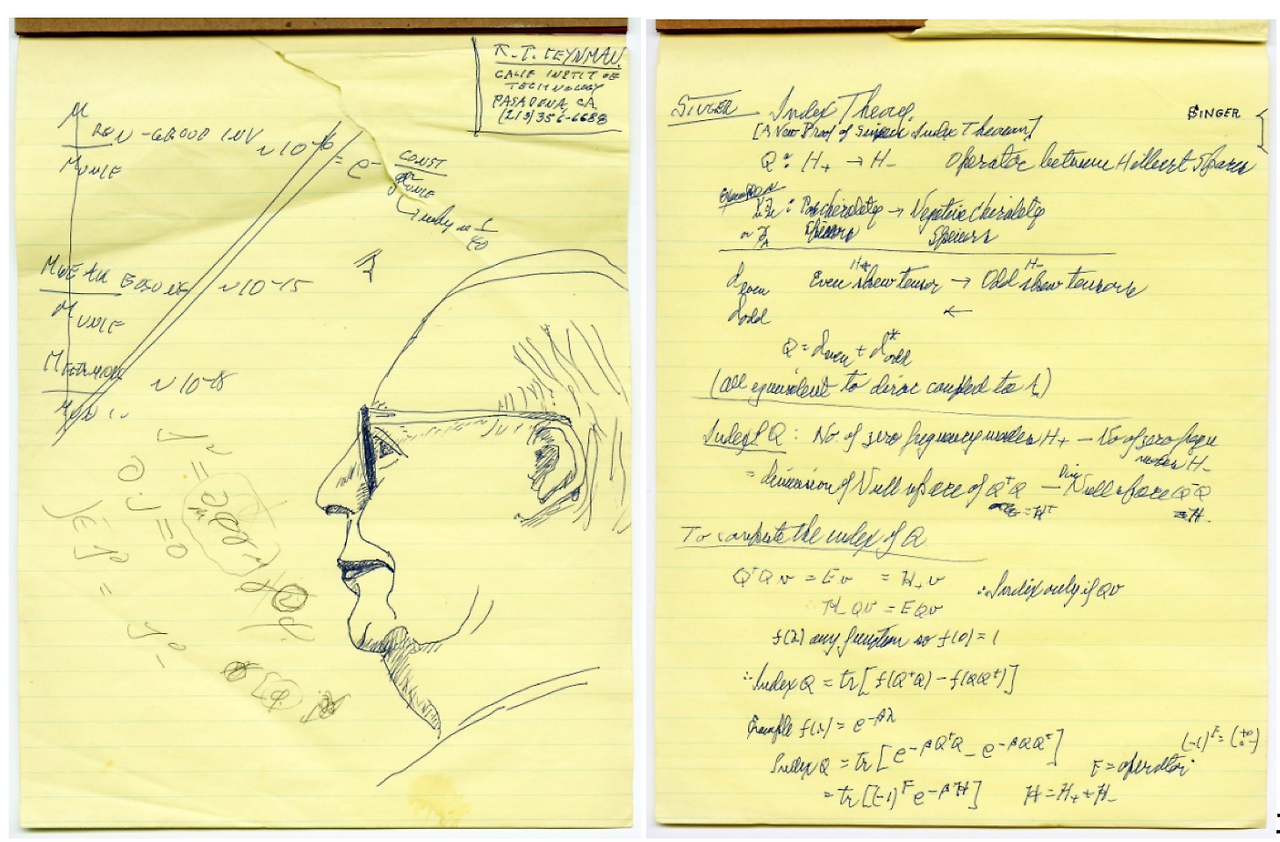 R. P. FEYNMAN
CALIF INSTIT OF
TECHNOLOGY
PASADENA, CA.
(213) 356-6688
M REN-GROUP INV ~10-16 = e-
CONST
g²UNIF
M UNIF
→ only if 1/40
M WEAK BOSONS ~10-15
M UNIF
~10-18
J^μ =
∂·J = 0
SINGER Index Theory
SINGER
[A New Proof of Index Theorem]
Q: H+ → H- Operator between Hilbert Spaces
Examples
: Pos chirality → Negative Chirality
or Spinors Spinors
H+ H-
d even Even skew tensor → Odd skew tensors
d odd ←
Q = d even + d* odd
(all equivalent to dirac coupled to h)
Index of Q: No of zero frequency modes H+ - No of zero frequ
modes H-
= dimension of Null space of Q†Q - Dim Null space Q†Q
= H+ = H-
To compute the index of Q
Q†Q v = E v = H+ v ∴ Index only if Qv
H- Qv = E Qv
f(λ) any function so f(0) = 1
∴ Index Q = tr[f(Q†Q) - f(QQ†)]
Example f(λ) = e-βλ
Index Q = tr[e-βQ†Q - e-βQQ†]
(-1)^F = (+0 0-)
F = operator
= tr[(-1)^F e-βH] H = H+ + H-